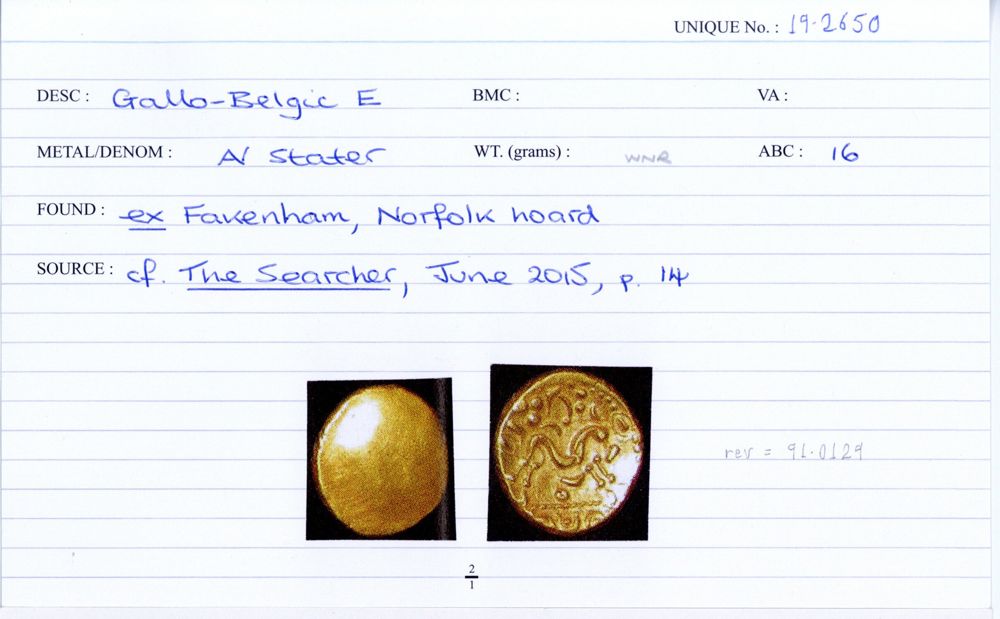 UNIQUE No. : 19.2650
DESC : Gallo-Belgic E BMC : VA :
METAL/DENOM : AV Stater WT. (grams) : WNR ABC : 16
FOUND : ex Fakenham, Norfolk hoard
SOURCE : cf. The Searcher, June 2015, p. 14
rev = 91.0129
2
1